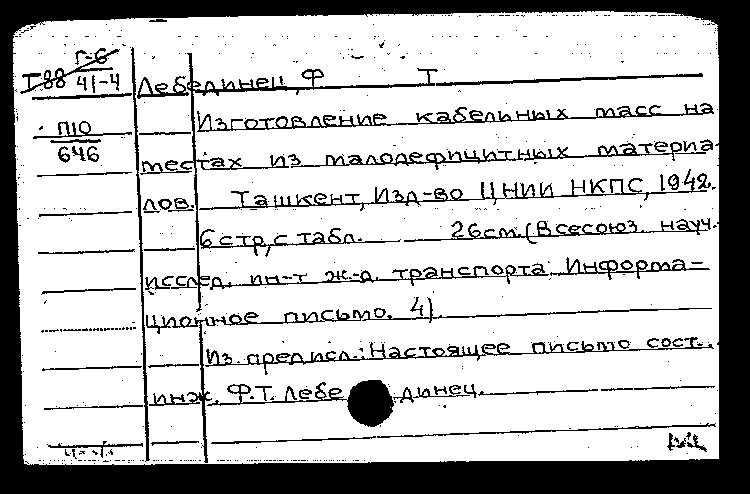 Г-6
Т88 41-4
Лебединец, Ф Т
П10
646
Изготовление кабельных масс на
местах из малодефицитных материа-
лов. Ташкент, Изд-во ЦНИИ НКПС, 1942.
6 стр, с табл. 26 см. (Всесоюз. науч.-
исслед. ин-т ж.-д. транспорта. Информа-
ционное письмо. 4)
Из предисл.: Настоящее письмо сост.
инж. Ф.Т. Лебединец.